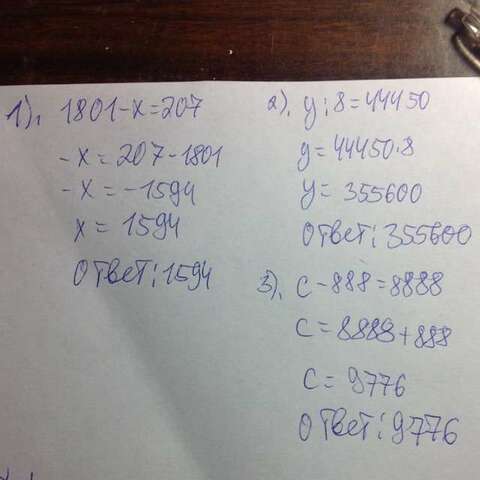 1). 1801-x=207
-x = 207-1801
-x = -1594
x = 1594
Ответ: 1594
2). y:8=44450
y=44450·8
y = 355600
Ответ: 355600
3). c-888=8888
c=8888+888
c = 9776
Ответ: 9776